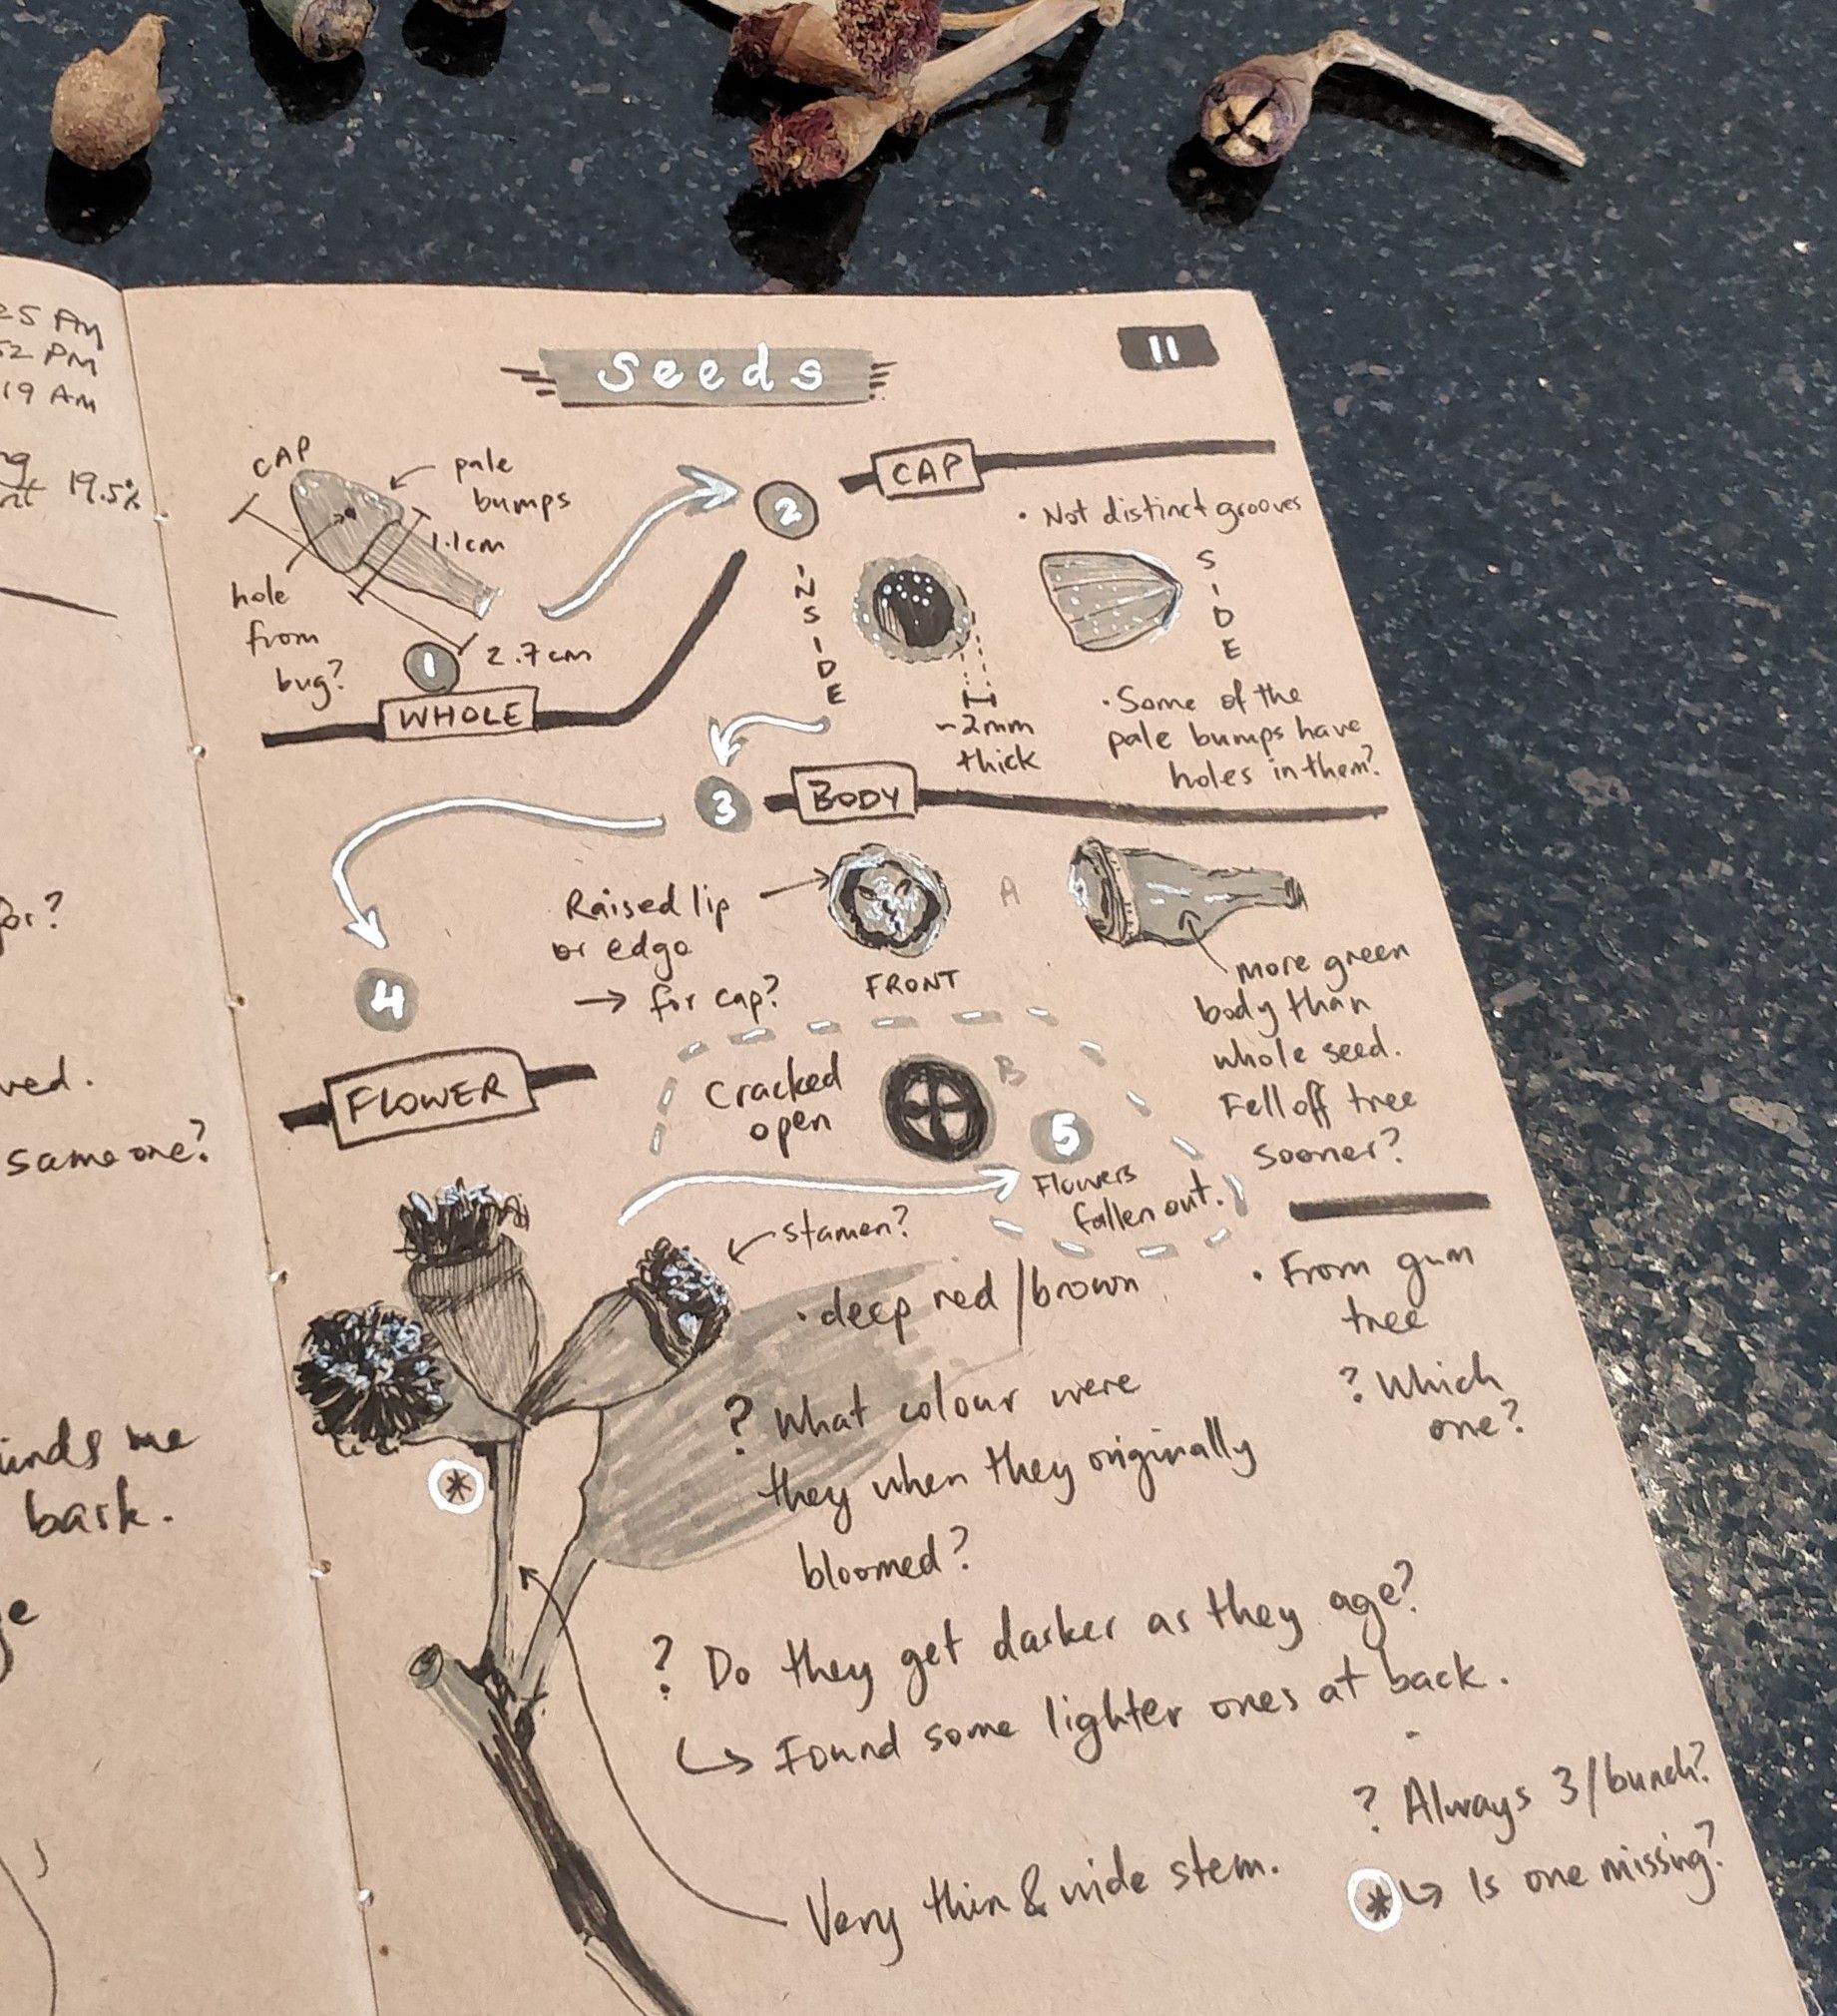 25 AM
52 PM
19 AM
19.5%
for?
same one?
bark.
11
Seeds
CAP
pale
bumps
1.1cm
hole
from
bug?
2.7cm
1
WHOLE
2
CAP
• Not distinct grooves
INSIDE
SIDE
~2mm
thick
• Some of the
pale bumps have
holes in them?
3
BODY
Raised lip
or edge
→ for cap?
FRONT
A
more green
body than
whole seed.
Fell off tree
sooner?
4
FLOWER
Cracked
open
B
5
Flowers
fallen out.
stamen?
• deep red/brown
? What colour were
they when they originally
bloomed?
• From gum
tree
? Which
one?
*
? Do they get darker as they age?
↳ Found some lighter ones at back.
? Always 3/bunch?
* ↳ Is one missing?
Very thin & wide stem.